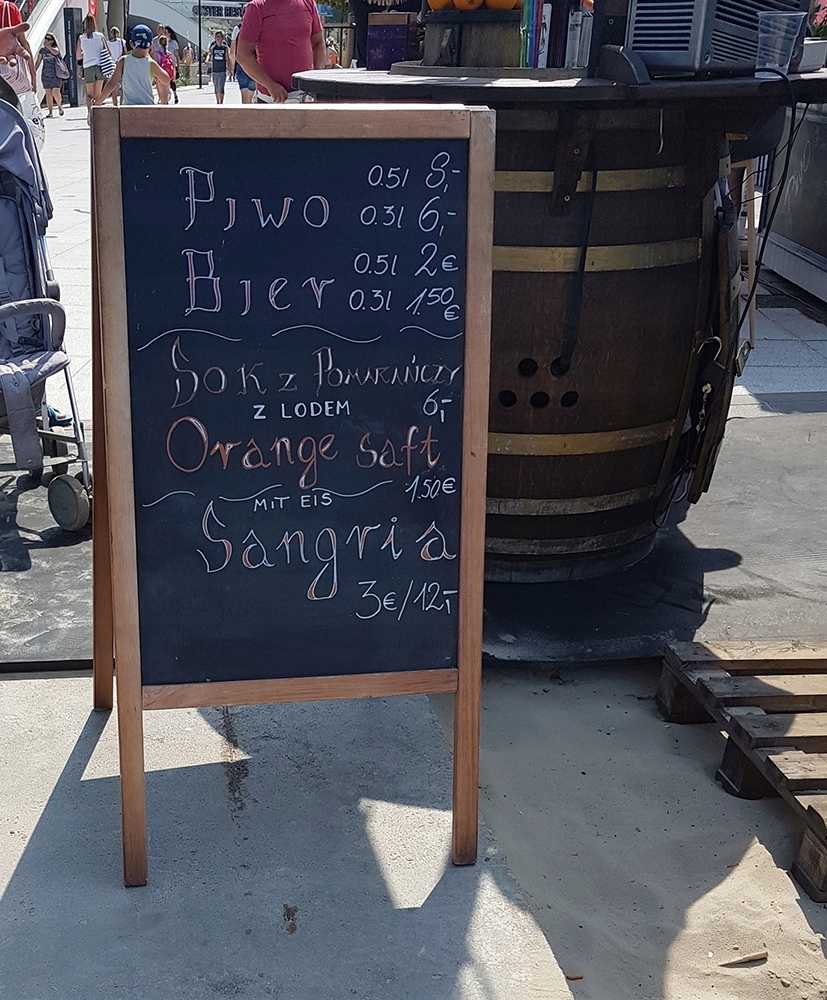 Piwo 0.5l 8,-
0.3l 6,-
Bier 0.5l 2€
0.3l 1.50 €
Sok z Pomarańczy
Z LODEM 6,-
Orange saft
MIT EIS 1.50€
Sangria
3€/12,-